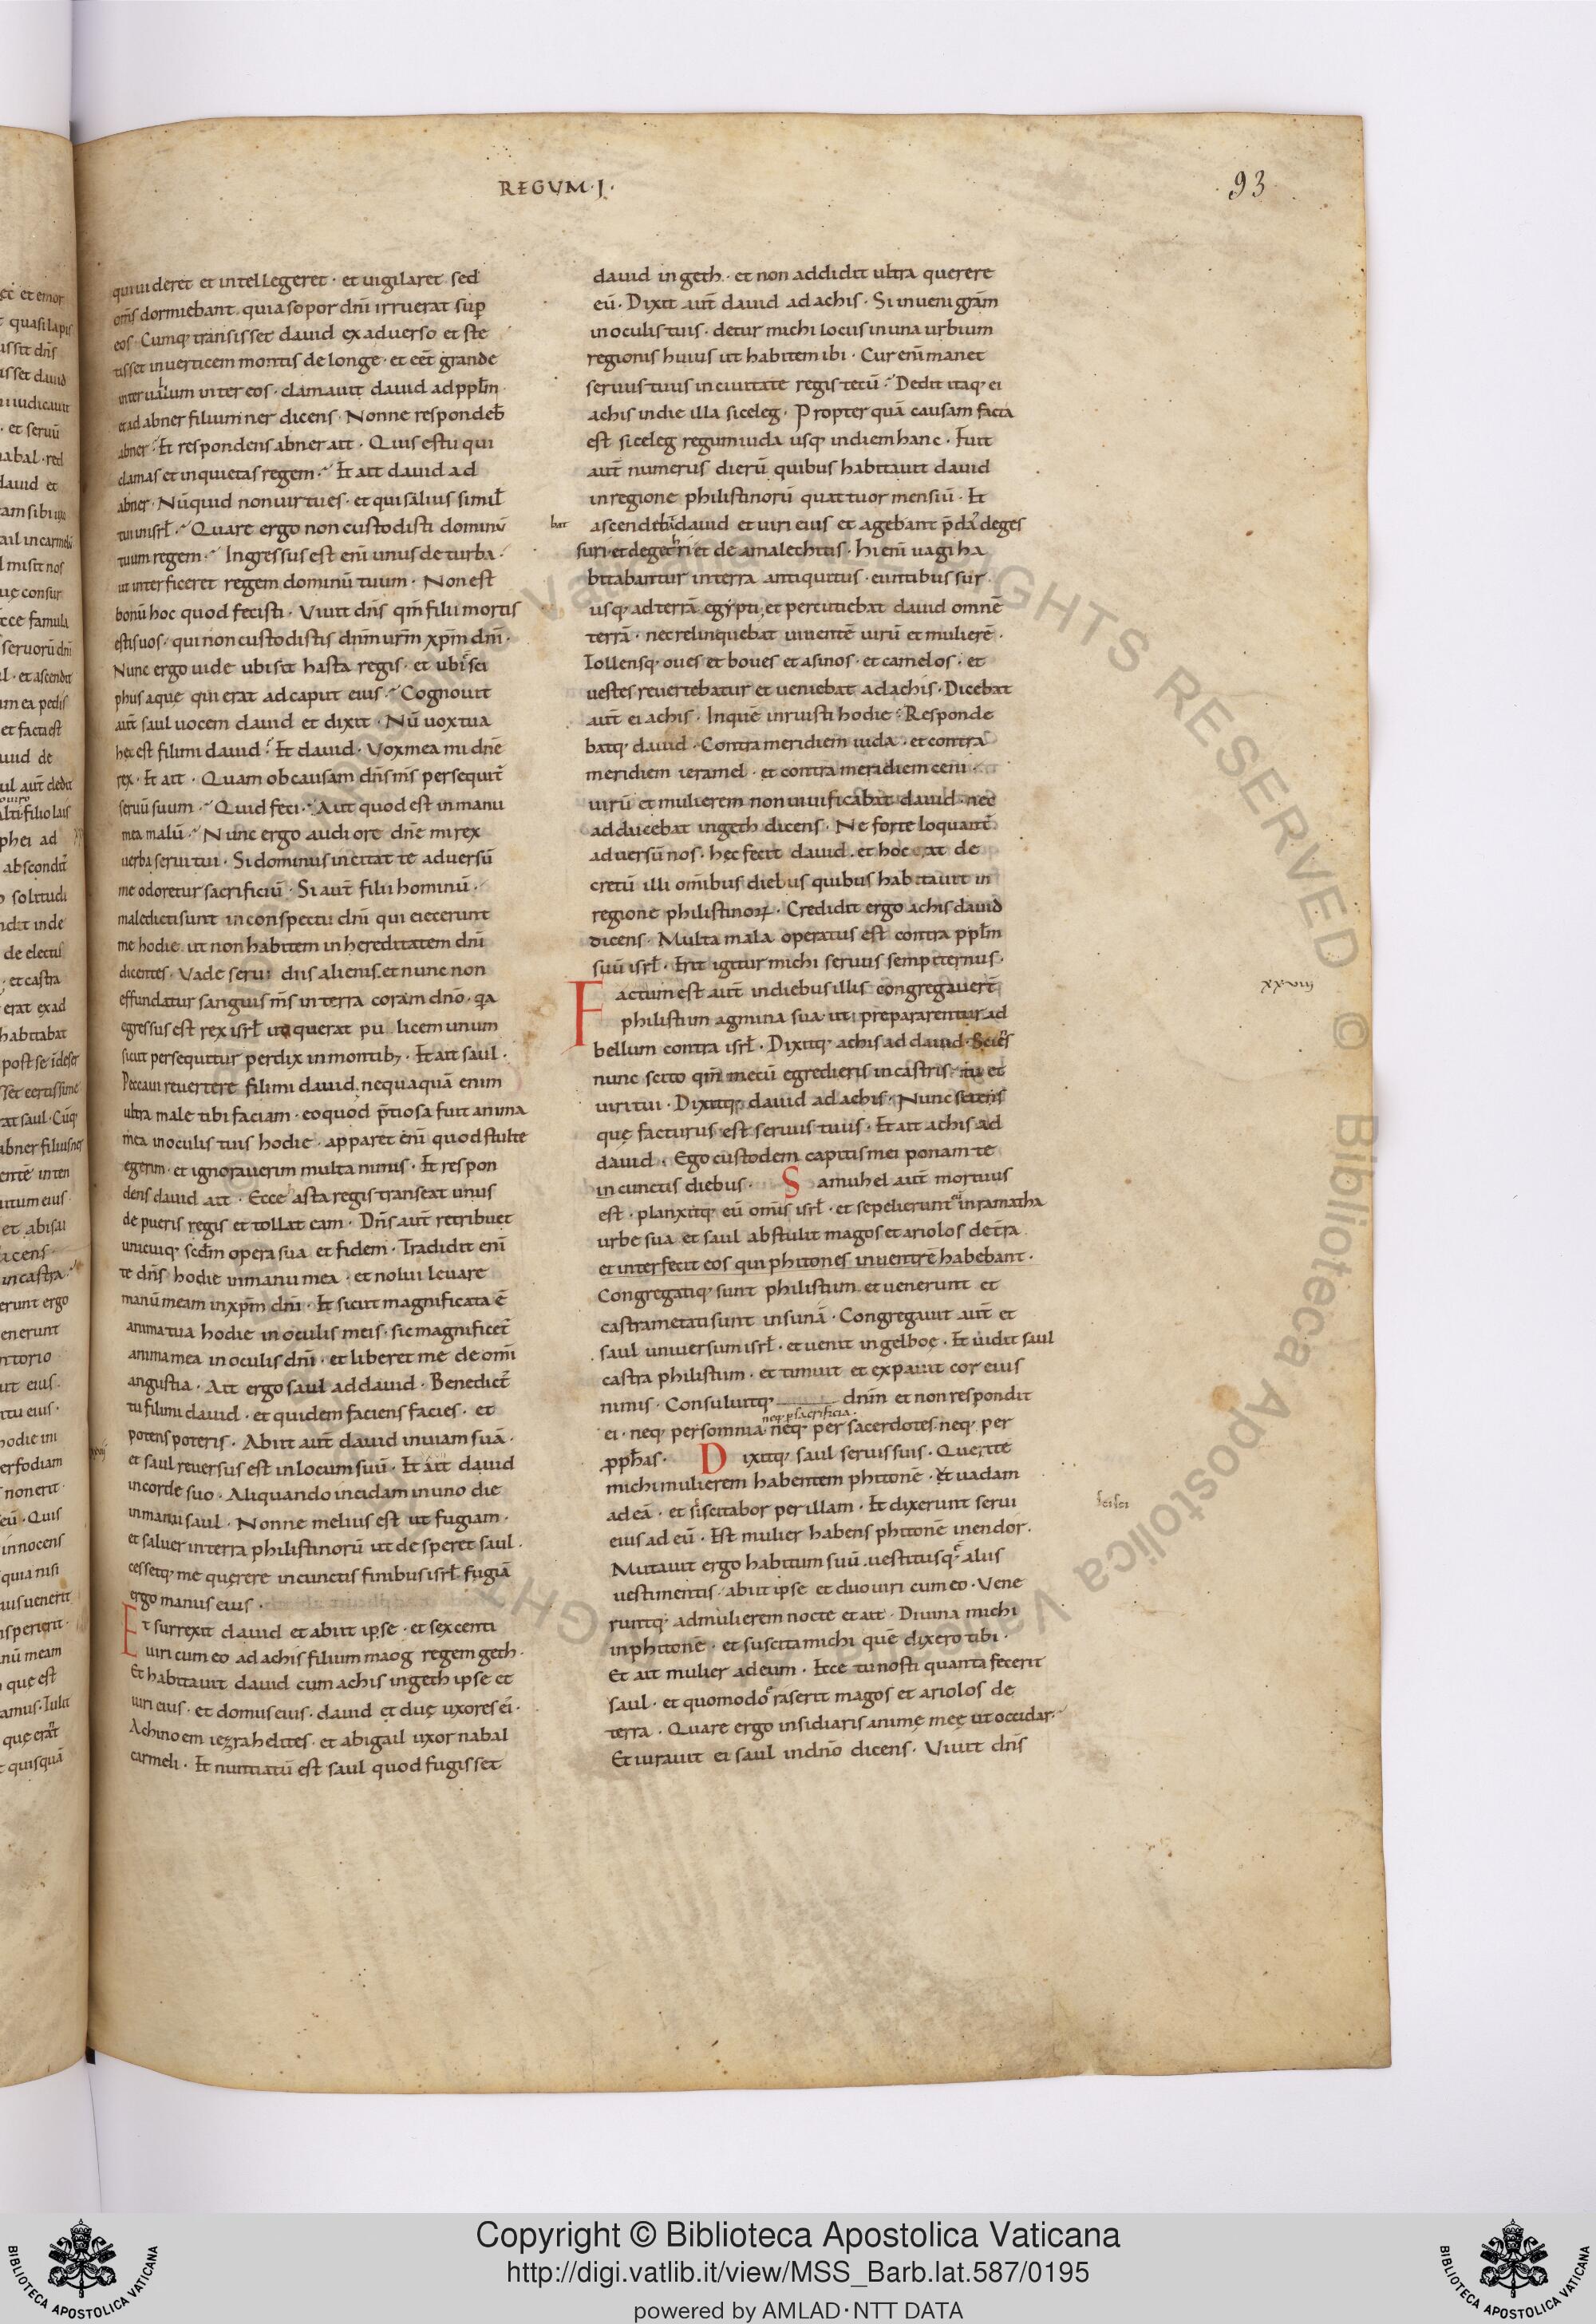 REGVM·I·
93
qui uideret et intellegeret · et uigilaret sed
om̄s dormiebant quia sopor dn̄i irruerat sup̄
eos · Cumq; transisset dauid ex aduerso et ste
tisset in uerticem montis de longe · et eēt grande
interuallum inter eos · clamauit dauid ad ppl̄m
et ad abner filium ner dicens · Nonne respondeb̄
abner ? Et respondens abner ait · Quis es tu qui
clamas et inquietas regem ? Et ait dauid ad
abner · Nūquid non uir tu es · et quis alius simil̄
tui in isrl̄ ? Quare ergo non custodisti dominū
tuum regem ? Ingressus est eni unus de turba ·
ut interficeret regem dominū tuum · Non est
bonū hoc quod fecisti · Viuit dn̄s qm̄ filii mortis
estis uos · qui non custodistis dn̄m ur̄m xp̄m dn̄i ·
Nunc ergo uide ubi sit hasta regis · et ubi sci
phus aque qui erat ad caput eius ? Cognouit
aut̄ saul uocem dauid et dixit · Nū uox tua
hec est fili mi dauid ? Et dauid · Vox mea mi dn̄e
rex · Et ait · Quam ob causam dn̄s m̄s persequit̄
seruū suum ? Quid feci ? Aut quod est in manu
mea malū ? Nunc ergo audi ore dn̄e mi rex
uerba serui tui · Si dominus incitat te aduersū
me odoretur sacrificiū · Si aut̄ filii hominū ·
maledicti sunt in conspectu dn̄i qui eiecerunt
me hodie ut non habitem in hereditatem dn̄i
dicentes · Vade serui diis alienis et nunc non
effundatur sanguis m̄s in terra coram dn̄o · q̄a
egressus est rex isrl̄ ut querat pu licem unum
sicut persequitur perdix in montib; · Et ait saul ·
Peccaui reuertere fili mi dauid nequaquā enim
ultra male tibi faciam · eo quod p̄tiosa fuit anima
mea in oculis tuis hodie · apparet eni quod stulte
egerim · et ignorauerim multa nimis · Et respon
dens dauid ait · Ecce hasta regis transeat unus
de pueris regis et tollat eam · Dn̄s aut̄ retribuet
unicuiq; scdm opera sua et fidem · Tradidit eni
te dn̄s hodie in manu mea · et nolui leuare
manū meam in xp̄m dn̄i · Et sicut magnificata ē
anima tua hodie in oculis meis · sic magnificet̄
anima mea in oculis dn̄i · et liberet me de omi
angustia · Ait ergo saul ad dauid · Benedict̄
tu fili mi dauid · et quidem faciens facies · et
potens poteris · Abiit aut̄ dauid in uiam suā ·
et saul reuersus est in locum suū · Et ait dauid
in corde suo · Aliquando incidam in uno die
in manu saul · Nonne melius est ut fugiam ·
et saluer in terra philistinorū ut desperet saul ·
cessetq; me querere in cunctis finibus isrl̄ fugiā
ergo manus eius ·
Et surrexit dauid et abiit ipse · et sexcenti
uiri cum eo ad achis filium maog regem geth ·
Et habitauit dauid cum achis in geth ipse et
uiri eius · et domus eius · dauid et duę uxores ei ·
Achinoem iezrahelites · et abigail uxor nabal
carmeli · Et nuntiatū est saul quod fugisset
dauid in geth · et non addidit ultra querere
eū · Dixit aut̄ dauid ad achis · Si inueni gram̄
in oculis tuis · detur michi locus in una urbium
regionis huius ut habitem ibi · Cur eni manet
seruus tuus in ciuitate regis tecū ? Dedit itaq; ei
achis in die illa siceleg · Propter quā causam facta
est siceleg regum iuda usq; in diem hanc · Fuit
aut̄ numerus dierū quibus habitauit dauid
in regione philistinorū quattuor mensiū · Et
bat
ascendebat dauid et uiri eius et agebant p̄das de ges
suri · et de gethri et de amalechitis · Hi eni uagi ha
bitabantur in terra antiquitus · euntibus sur
usq; ad terrā egypti et percutiebat dauid omnē
terrā · nec relinquebat uiuentē uirū et mulierē ·
Tollensq; oues et boues et asinos · et camelos · et
uestes reuertebatur et ueniebat ad achis · Dicebat
aut̄ ei achis · In quē irruisti hodie ? Responde
batq; dauid · Contra meridiem iuda · et contra
meridiem ieramel · et contra meridiem ceni ·
uirū et mulierem non uiuificabat dauid · nec
adducebat in geth dicens · Ne forte loquant̄
aduersū nos · hec fecit dauid · et hoc erat de
cretū illi omibus diebus quibus habitauit in
regione philistinorꝝ · Credidit ergo achis dauid
dicens · Multa mala operatus est contra ppl̄m
suū isrl̄ · Erit igitur michi seruus sempiternus ·
Factum est aut̄ in diebus illis congregauert̄
xxviii
philistiim agmina sua ut prepararentur ad
bellum contra isrl̄ · Dixitq; achis ad dauid · Sciens
nunc scito qm̄ mecū egredieris in castris · tu et
uiri tui · Dixitq; dauid ad achis · Nunc scieris
quę facturus est seruus tuus · Et ait achis ad
dauid · Ego custodem capitis mei ponam te
in cunctis diebus · Samuhel aut̄ mortuus
est · planxitq; eū omis isrl̄ · et sepelierunt eū in ramatha
urbe sua et saul abstulit magos et ariolos de tr̄ra
et interfecit eos qui phitones in uentre habebant ·
Congregatiq; sunt philistiim et uenerunt et
castrametati sunt in sunā · Congregauit aut̄ et
saul uniuersum isrl̄ · et uenit in gelboę · Et uidit saul
castra philistiim · et timuit et expauit cor eius
nimis · Consuluitq; dn̄m et non respondit
neq; p sacrificia ·
ei · neq; per somnia neq; per sacerdotes neq; per
pph̄as · Dixitq; saul seruis suis · Querite
michi mulierem habentem phitonē · et uadam
ad eā · et siscitabor per illam · Et dixerunt serui
eius ad eū · Est mulier habens phitonē in endor ·
Mutauit ergo habitum suū uestitusq; ē aliis
uestimentis abiit ipse et duo uiri cum eo · Vene
runtq; ad mulierem nocte et ait · Diuina michi
in phitone · et suscita michi quē dixero tibi ·
Et ait mulier ad eum · Ecce tu nosti quanta fecerit
saul · et quomodo eraserit magos et ariolos de
terra · Quare ergo insidiaris animę meę ut occidar ·
Et iurauit ei saul in dn̄o dicens · Viuit dn̄s
Copyright © Biblioteca Apostolica Vaticana
http://digi.vatlib.it/view/MSS_Barb.lat.587/0195
powered by AMLAD·NTT DATA
BIBLIOTECA APOSTOLICA VATICANA
BIBLIOTECA APOSTOLICA VATICANA